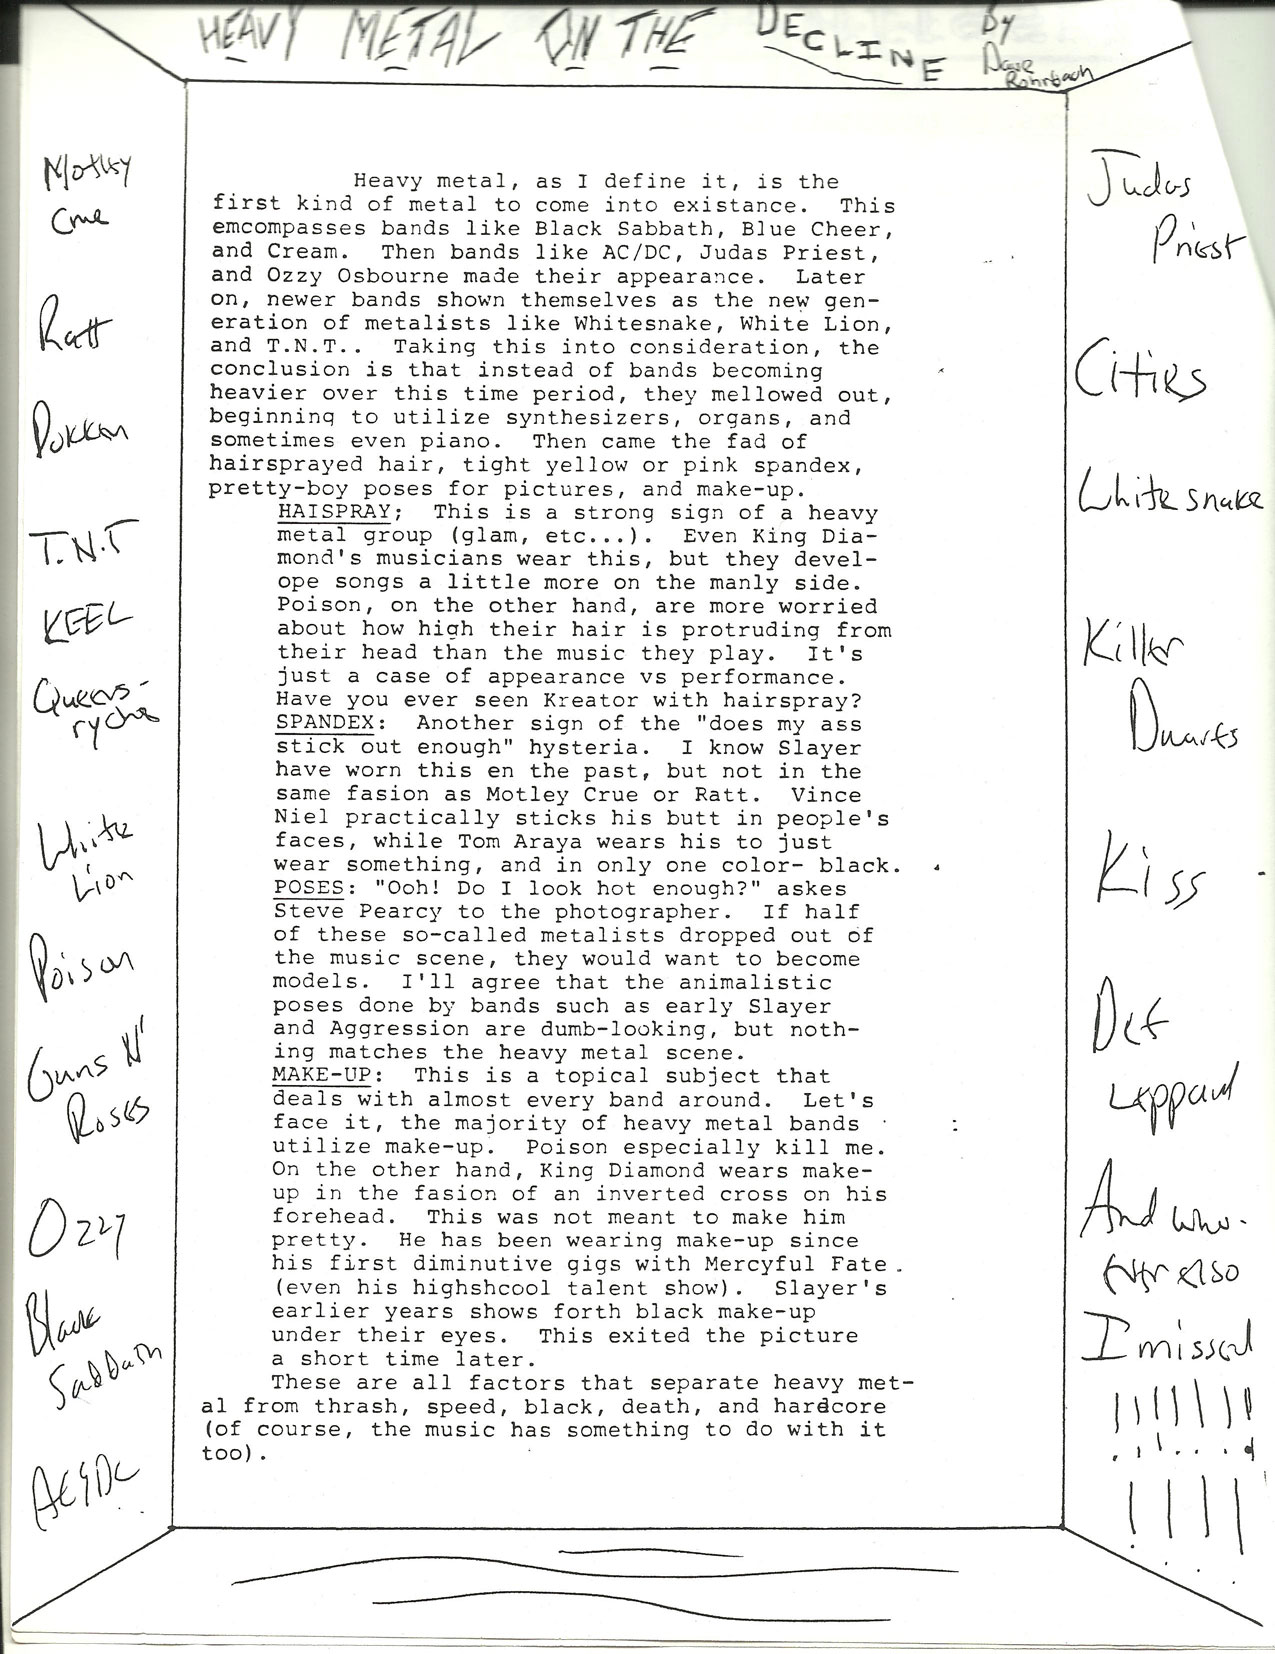 HEAVY METAL ON THE DECLINE By Dave Rohrbach
Motley
Crue
Ratt
Dokken
T.N.T
KEEL
Queens-
ryche
White
Lion
Poison
Guns N'
Roses
Ozzy
Black
Sabbath
AC/DC
Heavy metal, as I define it, is the
first kind of metal to come into existance.  This
emcompasses bands like Black Sabbath, Blue Cheer,
and Cream.  Then bands like AC/DC, Judas Priest,
and Ozzy Osbourne made their appearance.  Later
on, newer bands shown themselves as the new gen-
eration of metalists like Whitesnake, White Lion,
and T.N.T..  Taking this into consideration, the
conclusion is that instead of bands becoming
heavier over this time period, they mellowed out,
beginning to utilize synthesizers, organs, and
sometimes even piano.  Then came the fad of
hairsprayed hair, tight yellow or pink spandex,
pretty-boy poses for pictures, and make-up.
HAISPRAY;  This is a strong sign of a heavy
metal group (glam, etc...).  Even King Dia-
mond's musicians wear this, but they devel-
ope songs a little more on the manly side.
Poison, on the other hand, are more worried
about how high their hair is protruding from
their head than the music they play.  It's
just a case of appearance vs performance.
Have you ever seen Kreator with hairspray?
SPANDEX:  Another sign of the "does my ass
stick out enough" hysteria.  I know Slayer
have worn this en the past, but not in the
same fasion as Motley Crue or Ratt.  Vince
Niel practically sticks his butt in people's
faces, while Tom Araya wears his to just
wear something, and in only one color- black.
POSES: "Ooh! Do I look hot enough?" askes
Steve Pearcy to the photographer.  If half
of these so-called metalists dropped out of
the music scene, they would want to become
models.  I'll agree that the animalistic
poses done by bands such as early Slayer
and Aggression are dumb-looking, but noth-
ing matches the heavy metal scene.
MAKE-UP:  This is a topical subject that
deals with almost every band around.  Let's
face it, the majority of heavy metal bands
utilize make-up.  Poison especially kill me.
On the other hand, King Diamond wears make-
up in the fasion of an inverted cross on his
forehead.  This was not meant to make him
pretty.  He has been wearing make-up since
his first diminutive gigs with Mercyful Fate.
(even his highshcool talent show).  Slayer's
earlier years shows forth black make-up
under their eyes.  This exited the picture
a short time later.
These are all factors that separate heavy met-
al from thrash, speed, black, death, and hardcore
(of course, the music has something to do with it
too).
Judas
Priest
Cities
Whitesnake
Killer
Dwarfs
Kiss
Def
Leppard
And who-
ever else
I missed
!!!!!!!
!!!!